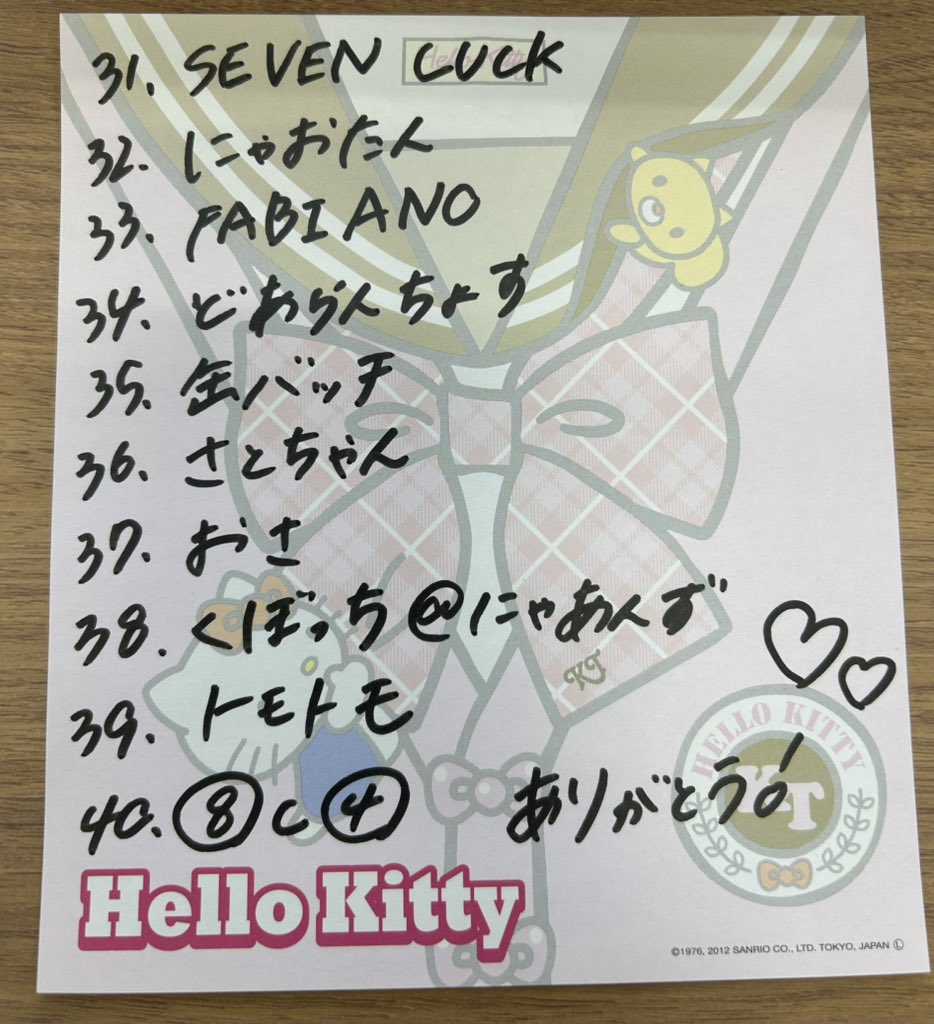 Hello Kitty
31. SEVEN LUCK
32. にゃおたん
33. FABIANO
34. どあらんちょす
35. 缶バッチ
36. さとちゃん
37. おさ
38. くぼっち@にゃあんず
KT
39. トモトモ
HELLO KITTY
KT
40. ⑧c④ ありがとう!
Hello Kitty
©1976, 2012 SANRIO CO., LTD. TOKYO, JAPAN Ⓛ